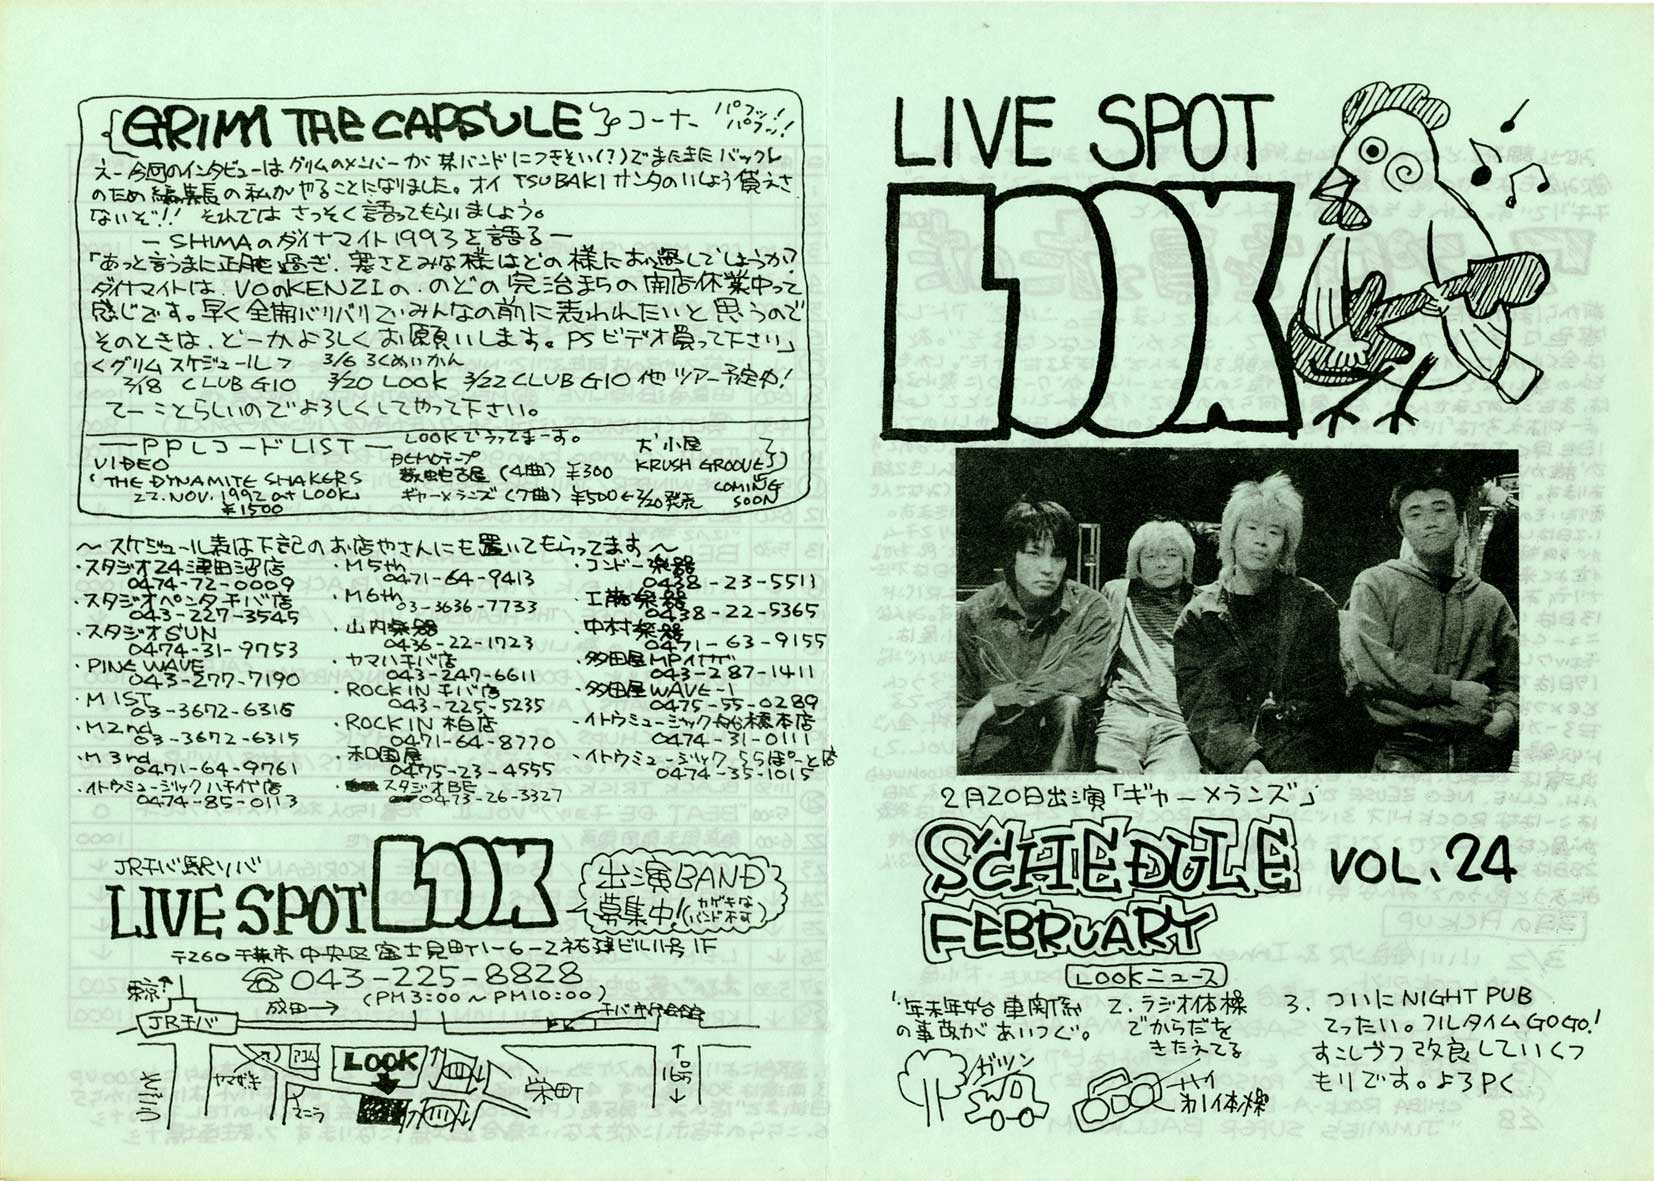 GRIM THE CAPSULE コーナー パフッ! パフッ!
えー今回のインタビューはグリムのメンバーが某バンドにつきそい(?)でまたまたバックレ
のため編集長の私がやることになりました。オイ TSUBAKI サンタのいしょう貸えさ
ないぞ!! それではさっそく語ってもらいましょう。
— SHIMAのダイナマイト1993を語る —
「あっと言うまに正月も過ぎ、寒さをみな様はどの様にお過しでしょうか?
ダイナマイトは、VOのKENZIの、のどの完治まちの開店休業中って
感じです。早く全開バリバリでみんなの前に表われたいと思うので
そのときは、どーかよろしくお願いします。PSビデオ買って下さい」
<グリムスケジュール> 3/6 ろくめいかん
2/18 CLUB G10 3/20 LOOK 3/22 CLUB G10 他ツアー予定め!
てーことらしいのでよろしくしてやって下さい。
— PPレコードLIST — LOOKでうってまーす。
VIDEO
「THE DYNAMITE SHAKERS
22. NOV. 1992 at LOOK」
¥1500
DEMOテープ
藪蛇古屋 (4曲) ¥300
ギャーメランズ (7曲) ¥500 ← 2/20発売
犬小屋
KRUSH GROOVE
COMING
SOON
〜 スケジュール表は下記のお店やさんにも置いてもらってます 〜
・スタジオ24津田沼店
0474-72-0009
・スタジオペンタ千バ店
043-227-3545
・スタジオSUN
0474-31-9753
・PINE WAVE
043-277-7190
・M 1ST
03-3672-6315
・M 2nd
03-3672-6315
・M 3rd
0471-64-9761
・イトウミュージック八千代店
0474-85-0113
・M 5th
0471-64-9413
・M 6th
03-3636-7733
・山内楽器
0436-22-1723
・ヤマハ千バ店
043-247-6611
・ROCK IN 千バ店
043-225-5235
・ROCK IN 柏店
0471-64-8770
・和田国屋
0475-23-4555
・スタジオBE
0473-26-3327
・コンドー楽器
0438-23-5511
・工藤楽器
0438-22-5365
・中村楽器
0471-63-9155
・多田屋MPイナゲ
043-287-1411
・多田屋WAVE-1
0475-55-0289
・イトウミュージック船橋本店
0474-31-0111
・イトウミュージックららぽーと店
0474-35-1015
JR千バ駅ソバ
LIVE SPOT LOOK
出演BAND
募集中!(カゲキなバンド不可)
〒260 千葉市中央区富士見町1-6-2 祐建ビル11号 1F
☎043-225-8828
(PM3:00〜PM10:00)
東京↑
成田→
JR千バ
千バ市民会館
そごう
ヤマザキ
LOOK
栄町
↑
16号
↓
LIVE SPOT
LOOK
2月20日出演「ギャーメランズ」
SCHEDULE VOL.24
FEBRUARY
LOOKニュース
1. 年末年始車関係
の事故があいつぐ。
ガツン
2. ラジオ体操
でからだを
きたえてる
ハイ
カ!体操
3. ついにNIGHT PUB
てったい。フルタイムGOGO!
すこしづつ改良していくつ
もりです。よろPC